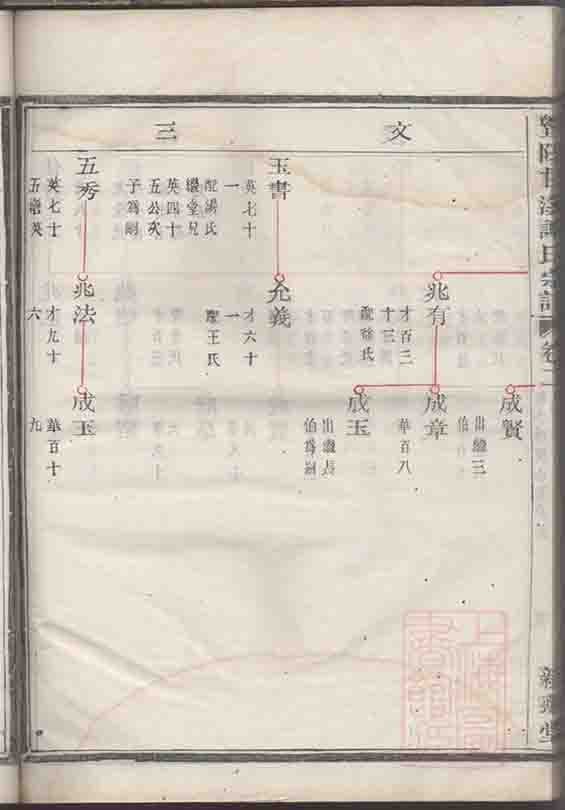 氏宗譜
卷二
文
三
成賢
出繼三
伯
兆有
才百三
十三
配徐氏
成章
華百八
成玉
出繼長
伯爲嗣
玉書
英七十
一
繼堂兄
英四十
五公次
子爲嗣
允義
才六十
一
配王氏
五秀
英七十
兆法
才九十
六
成玉
華百十
九